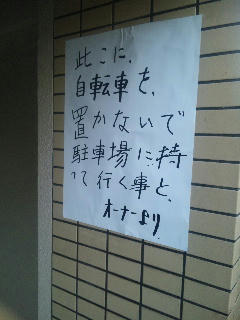 此こに、
自転車を、
置かないで
駐車場に持
って行く事と、
オーナーより